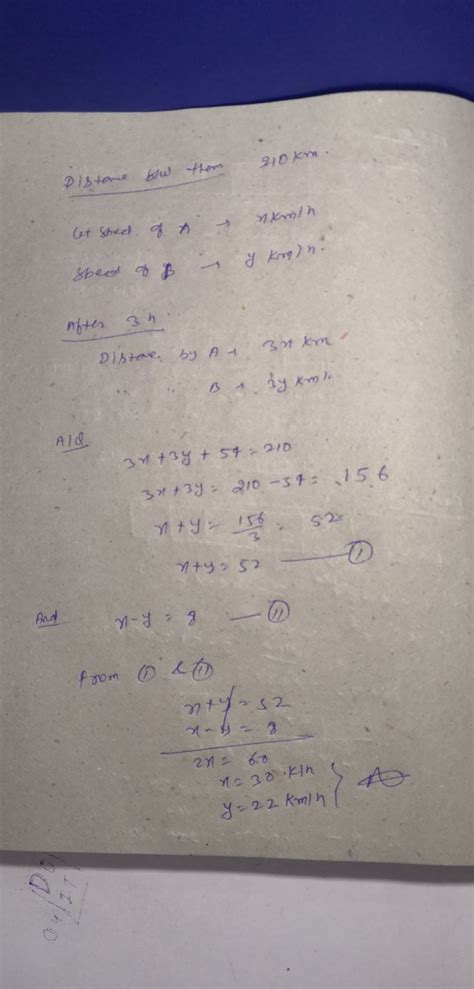 Distance b/w them 210 km.
Let speed of A → x km/h
Speed of B → y km/h.
After 3 h
Distance by A → 3x km.
" " B → 3y km/.
A/Q
3x + 3y + 54 = 210
3x + 3y = 210 - 54 = 156
x + y = 156/3 = 52
x + y = 52 — (I)
And x - y = 8 — (II)
From (I) & (II)
x + y = 52
x - y = 8
2x = 60
x = 30 k/h
y = 22 km/h